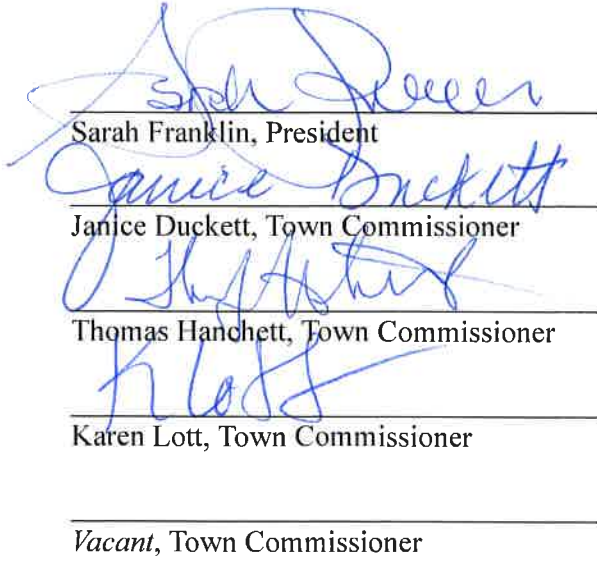 Sarah Franklin, President
Janice Duckett
Janice Duckett, Town Commissioner
Thomas Hanchett, Town Commissioner
K Lott
Karen Lott, Town Commissioner
Vacant, Town Commissioner